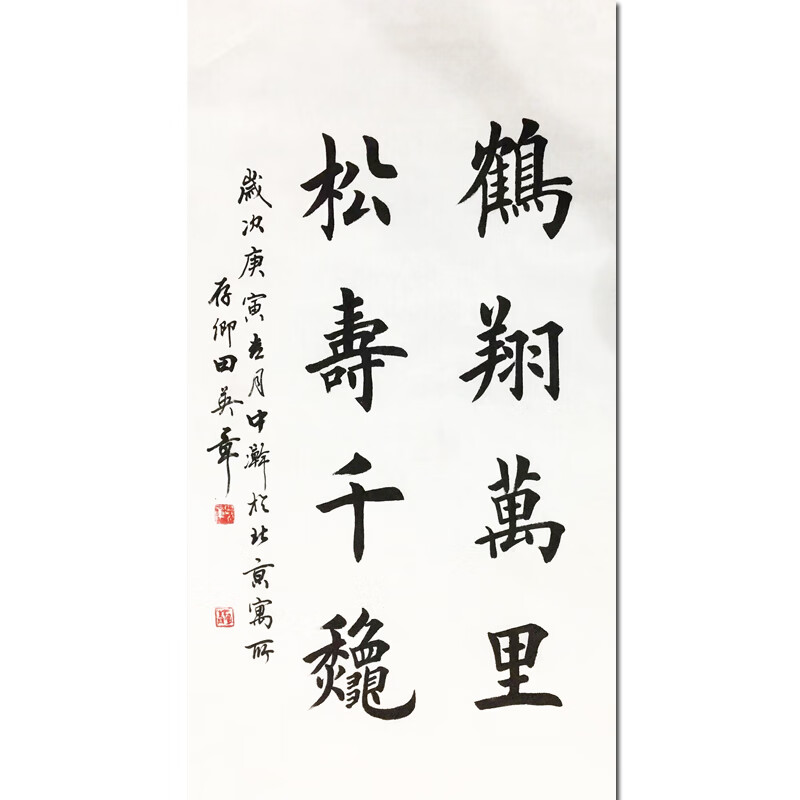 鶴翔萬里
松壽千龝
歲次庚寅春月中澣於北京寓所
存卿田英章